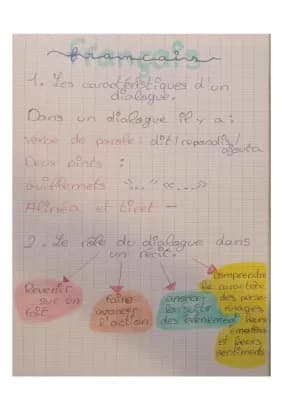 Français
français
1. Les caractéristiques d'un
dialogue.
Dans un dialogue il y a :
verbe de parole : dit / repondis /
ajouta
Deux points :
guillemets "..." «...»
Alinéa et tiret –
2. Le rôle du dialogue dans
un récit.
Revenir
sur un
fait
Faire
avancer
l'action
anoncer
la suite
des événement
comprendre
le caractère
des perso-
nnages
leurs
émotions
et leurs
sentiments